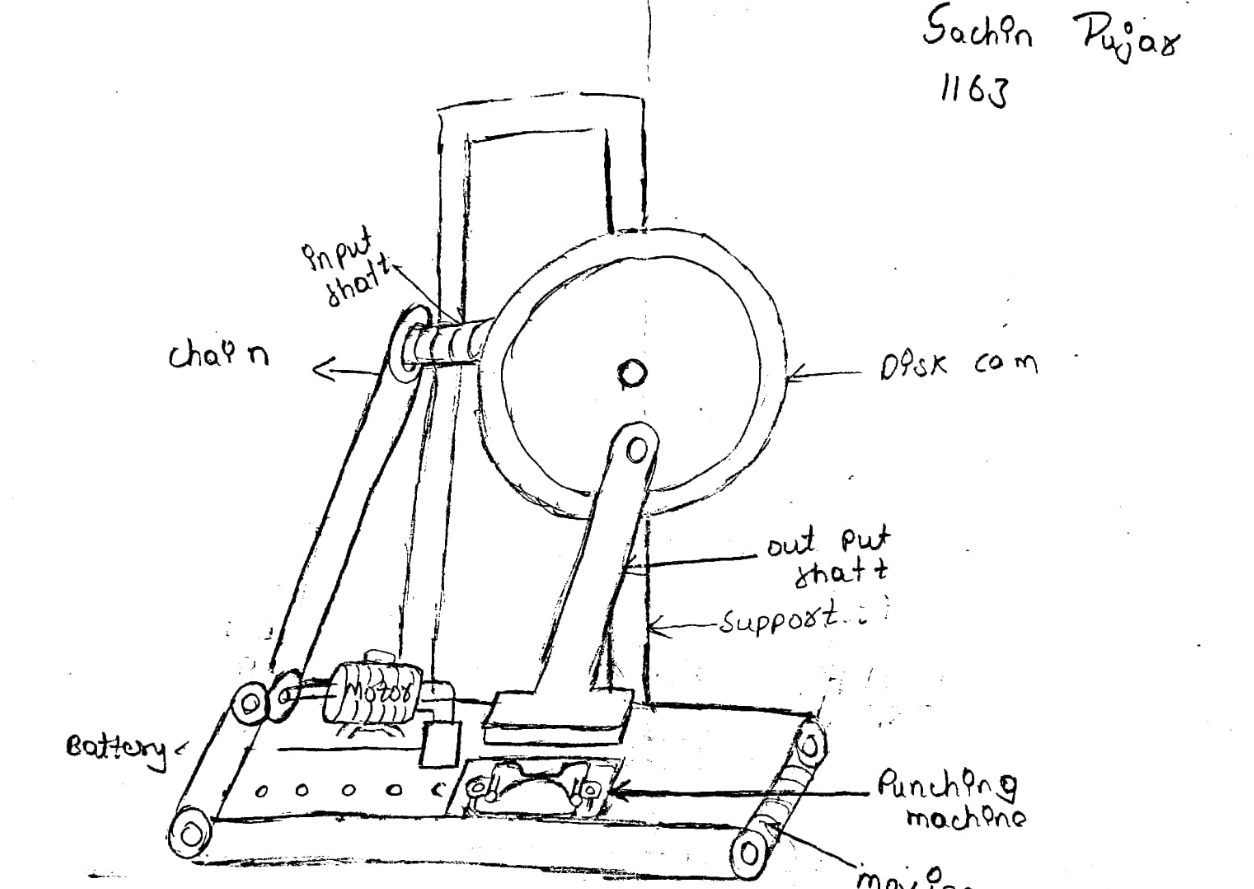 Sachin Pujar
1163
input
shaft
chain
Disk cam
out put
shaft
support
Motor
Battery
Punching
machine